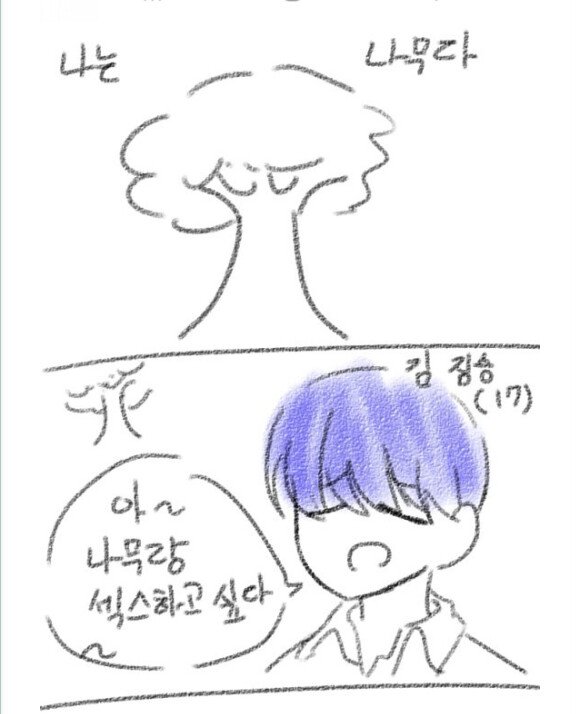 나는 나무다
김 짐승
(17)
아~
나무랑
섹스하고 싶다
~